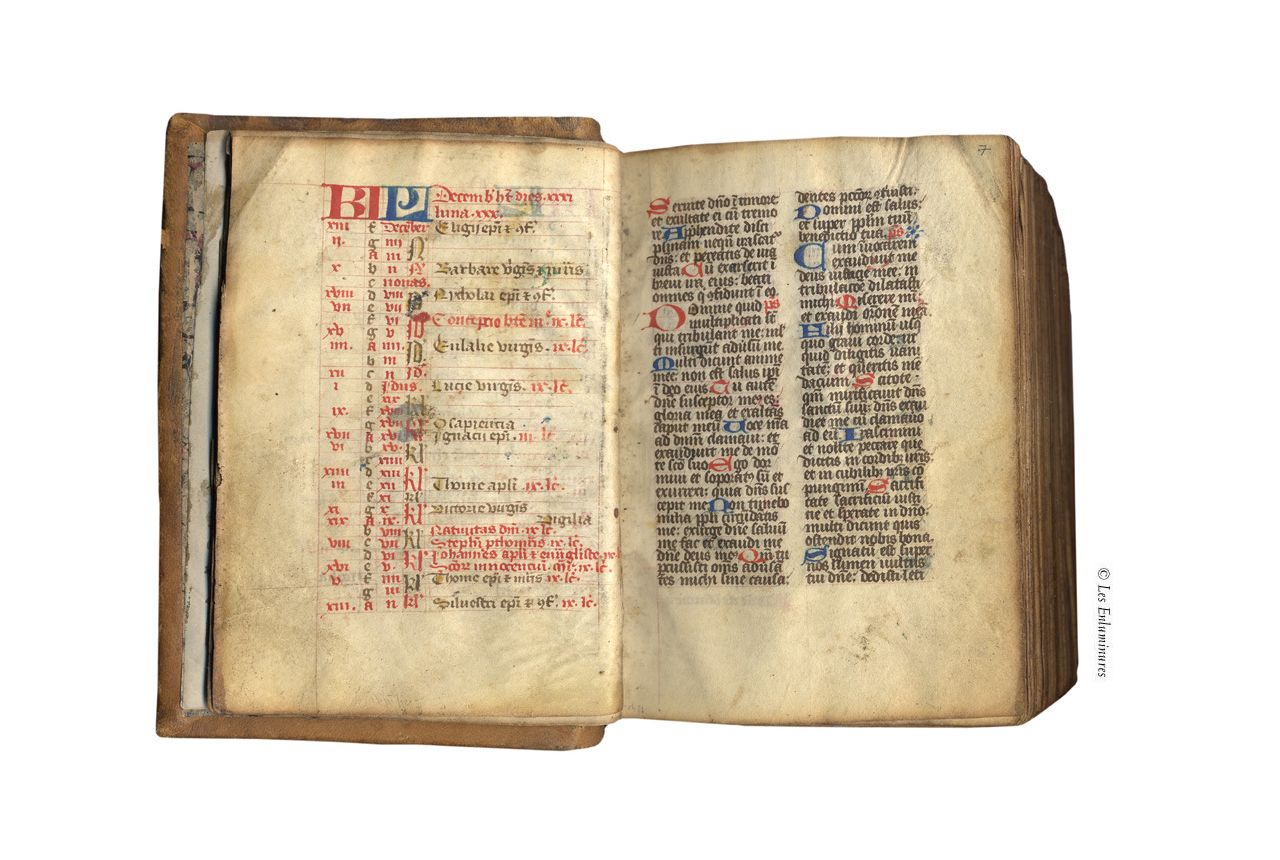 KL Decemb' ht dies xxxi
luna xxx.
xiii f Decēber Eligii epī ⁊ ɔf.
ii. g iiii N
A iii
x b ii Nꝰ Barbare v̓gīs ⁊ mr̄is
c nonas.
xviii d viii Nicholai epī ⁊ ɔf.
vii e vii
f vi Id Conceptio btē mꝰ. ix. lc̄.
xv g v
iiii. A iiii. Eulalie virgīs. ix. lc̄.
b iii
xii c ii Id.
i d Idus. Lucie virgīs. ix. lc̄.
e xix
ix. f xviii
g xvii O sapientia
xvii A xvi Ignacii epī. iii. lc̄
vi b xv. kl'
c xiiii
xiiii d xiii kl'
iii e xii Thome apli. ix. lc̄.
f xi kl'
xi g x. Victorie virgīs
xix A ix. kl' Vigilia
b viii Natiuitas dn̄i. ix. lc̄.
viii c vii kl' Stephī pthomr̄is ix. lc̄.
d vi kl' Iohannes apli ⁊ euu̅gliste
xvi e v Scōr innocenciū. ix. lc̄.
v f iiii kl' Thome epī ⁊ mr̄is ix. lc̄.
g iii
xiii. A ii kl' Siluestri epī ⁊ ɔf. ix. lc̄.
7
Seruite dn̄o ī timore
et exultate ei cū tremo
re Apphendite disci
plinam nequn̄ irascat
dn̄s: et pereatis de uia
iusta Cū exarserit ī
breui ira eius: beati
omnes q ɔfidunt ī eo
Domine quid ps
multiplicati sē
qui tribulant me: ml
ti insurgūt aduīsū me.
Multi dicunt anime
mee: non est salus ipī
ī deo eius Tu autē
dn̄e susceptor meꝰ es:
gloria mea et exaltās
caput meū Uoce mea
ad dn̄m clamaui: et
exaudiuit me de mō
te sc̄o suo Ego dor
miui et soporatꝰ sū et
exurrexi: quia dn̄s sus
cepit me Non timebo
milia ppli circūdātis
me: exurge dn̄e saluū
me fac et exaudi me
dn̄e deus meꝰ Qm̄ tu
pcussisti om̄s aduersā
tes michi sine causa:
dentes pctōr ɔtriuisti.
Domini est salus:
et super pplm tuū
benedictio tua. ps
Cum inuocarem
exaudiuit me
deus iusticie mee: in
tribulacōe dilatasti
michi Miserere mei:
et exaudi or̄one meā
Filij hominū usq
quo graui corde: ut
quid diligitis uani
tatē: et queritis me
dacium Scitote
qm̄ mirificauit dn̄s
sanctū suū: dn̄s exau
diet me cū clamauero
ad eū Irascimini
et nolite peccare que
dicitis in cordibꝰ uris:
et in cubilibꝰ ur̄is cō
pungimī Sacrifi
cate sacrificiū iusti
cie et sperate in dn̄o:
multi dicunt quis
ostendit nobis bona.
Signatū est super
nos lumen uultus
tui dn̄e: dedisti leti
© Les Enluminures